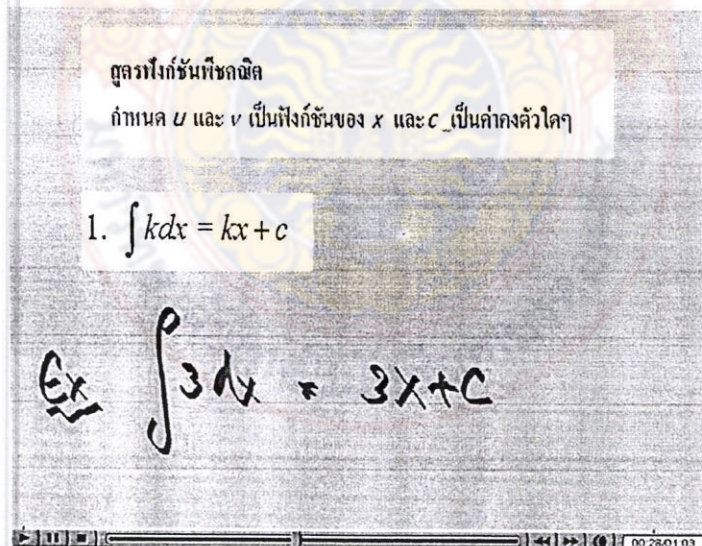 สูตรฟังก์ชันพีชคณิต
กำหนด u และ v เป็นฟังก์ชันของ x และ c เป็นค่าคงตัวใดๆ
1. ∫ kdx = kx + c
Ex ∫ 3 dx = 3x + C
00:28/01:03